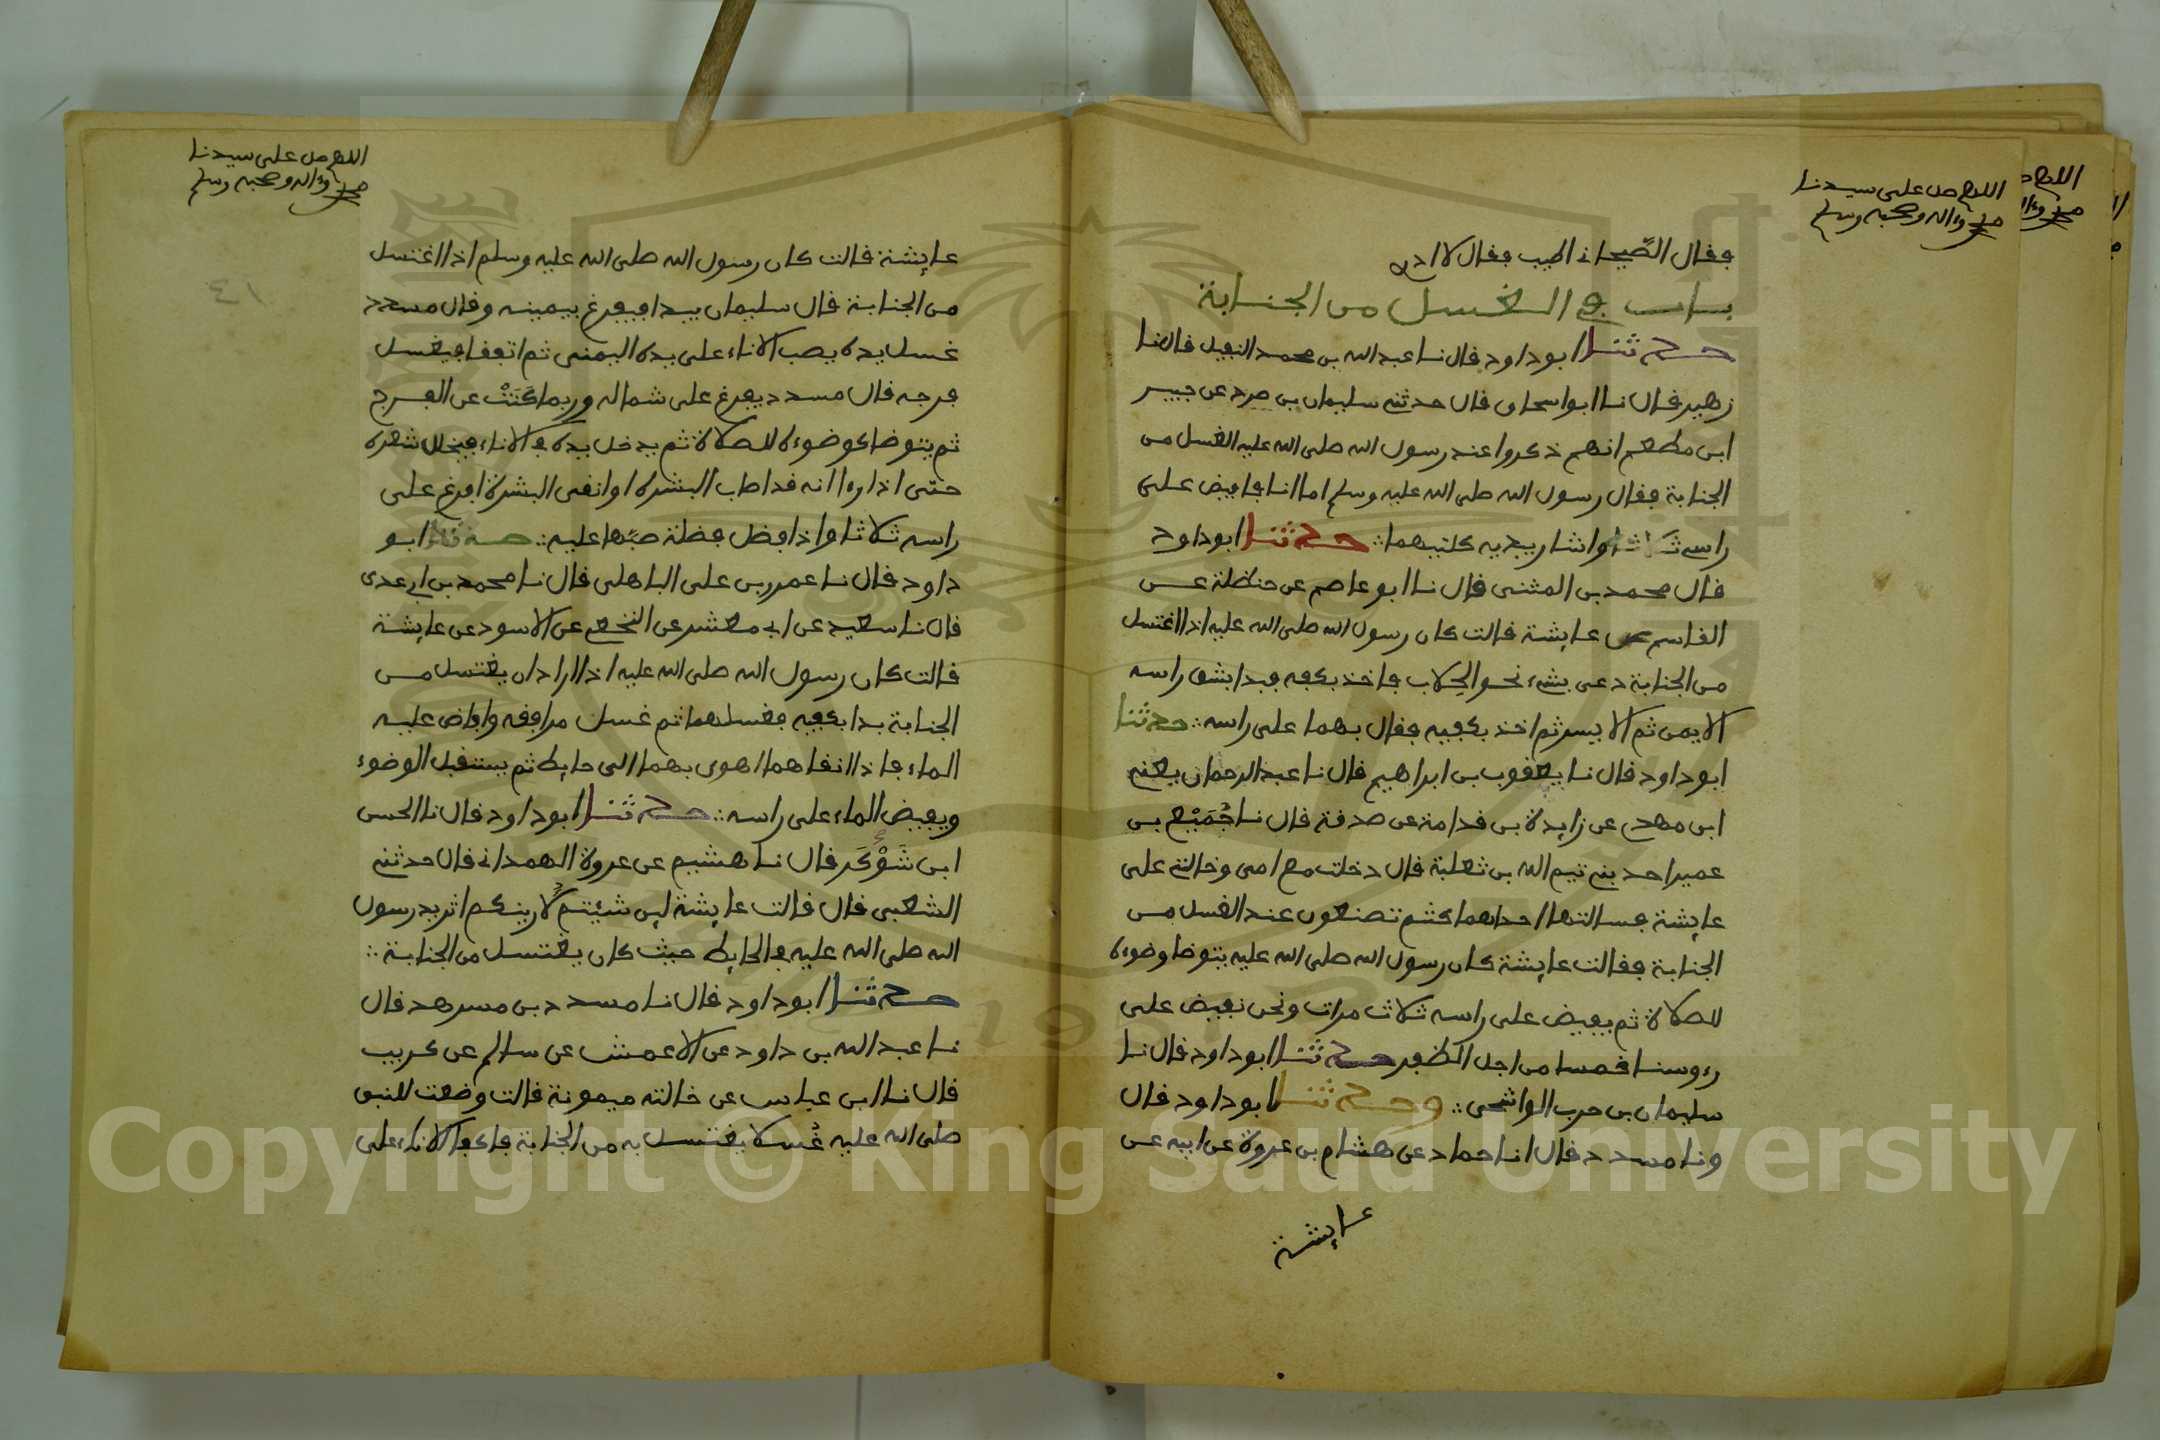 اللهم صل على سيدنا
محمد وءاله وصحبه وسلم
فقال الصيحاني اطيب فقال لا ادري
باب في الغسل من الجنابة
حدثنا ابو داود قال نا عبد الله بن محمد النفيلي قال نا
زهير قال نا ابو اسحاق قال حدثني سليمان بن صرد عن جبير
ابن مطعم انهم ذكروا عند رسول الله صلى الله عليه الغسل من
الجنابة فقال رسول الله صلى الله عليه وسلم اما انا فافيض على
راسي ثلاثا واشار بيديه كلتيهما حدثنا ابو داود
قال محمد بن المثنى قال نا ابو عاصم عن حنظلة عن
القاسم عن عايشة قالت كان رسول الله صلى الله عليه اذا اغتسل
من الجنابة دعى بشيء نحو الحلاب فاخذ بكفه فبدا بشق راسه
الايمن ثم الايسر ثم اخذ بكفيه فقال بهما على راسه حدثنا
ابو داود قال نا يعقوب بن ابراهيم قال نا عبد الرحمان يعني
ابن مهدي عن زايدة بن قدامة عن صدقة قال نا جُمَيْع بن
عمير احد بني تيم الله بن ثعلبة قال دخلت مع امي وخالتي على
عايشة فسالتها احداهما كنتم تصنعون عند الغسل من
الجنابة فقالت عايشة كان رسول الله صلى الله عليه يتوضا وضوءه
للصلاة ثم يفيض على راسه ثلاث مرات ونحن نفيض على
رءوسنا خمسا من اجل الظفر حدثنا ابو داود قال نا
سليمان بن حرب الواشحي وحدثنا ابو داود قال
ونا مسدد قال انا حماد عن هشام بن عروة عن ابيه عن
عايشة
اللهم صل على سيدنا
محمد وءاله وصحبه وسلم
٤١
عايشة قالت كان رسول الله صلى الله عليه وسلم اذا اغتسل
من الجنابة قال سليمان يبدا فيفرغ بيمينه وقال مسدد
غسل يده يصب الاناء على يده اليمنى ثم اتفقا فيغسل
فرجه قال مسدد يفرغ على شماله وربما كَنَتْ عن الفرج
ثم يتوضا كوضوءه للصلاة ثم يدخل يده في الاناء فيخلل شعره
حتى اذا راا انه قد اصاب البشرة او انقى البشرة افرغ على
راسه ثلاثا واذا فضل فضلة صبها عليه حدثنا ابو
داود قال نا عمرو بن علي الباهلي قال نا محمد بن ابي عدي
قال نا سعيد عن ابي معشر عن النخعي عن الاسود عن عايشة
قالت كان رسول الله صلى الله عليه اذا اراد ان يغتسل من
الجنابة بدا بكفيه فغسلهما ثم غسل مرافقه وافاض عليه
الماء فاذا انقاهما اهوى بهما الى حايط ثم يستقبل الوضوء
ويفيض الماء على راسه حدثنا ابو داود قال نا الحسن
ابن شَوْكَر قال نا هشيم عن عروة الهمداني قال حدثني
الشعبي قال قالت عايشة لين شيتم لارينكم اثر يد رسول
الله صلى الله عليه في الحايط حيث كان يغتسل من الجنابة
حدثنا ابو داود قال نا مسدد بن مسرهد قال
نا عبد الله بن داود عن الاعمش عن سالم عن كريب
قال نا ابن عباس عن خالته ميمونة قالت وضعت للنبي
صلى الله عليه غُسلا يغتسل به من الجنابة فاكفا الاناء على
Copyright © King Saud University